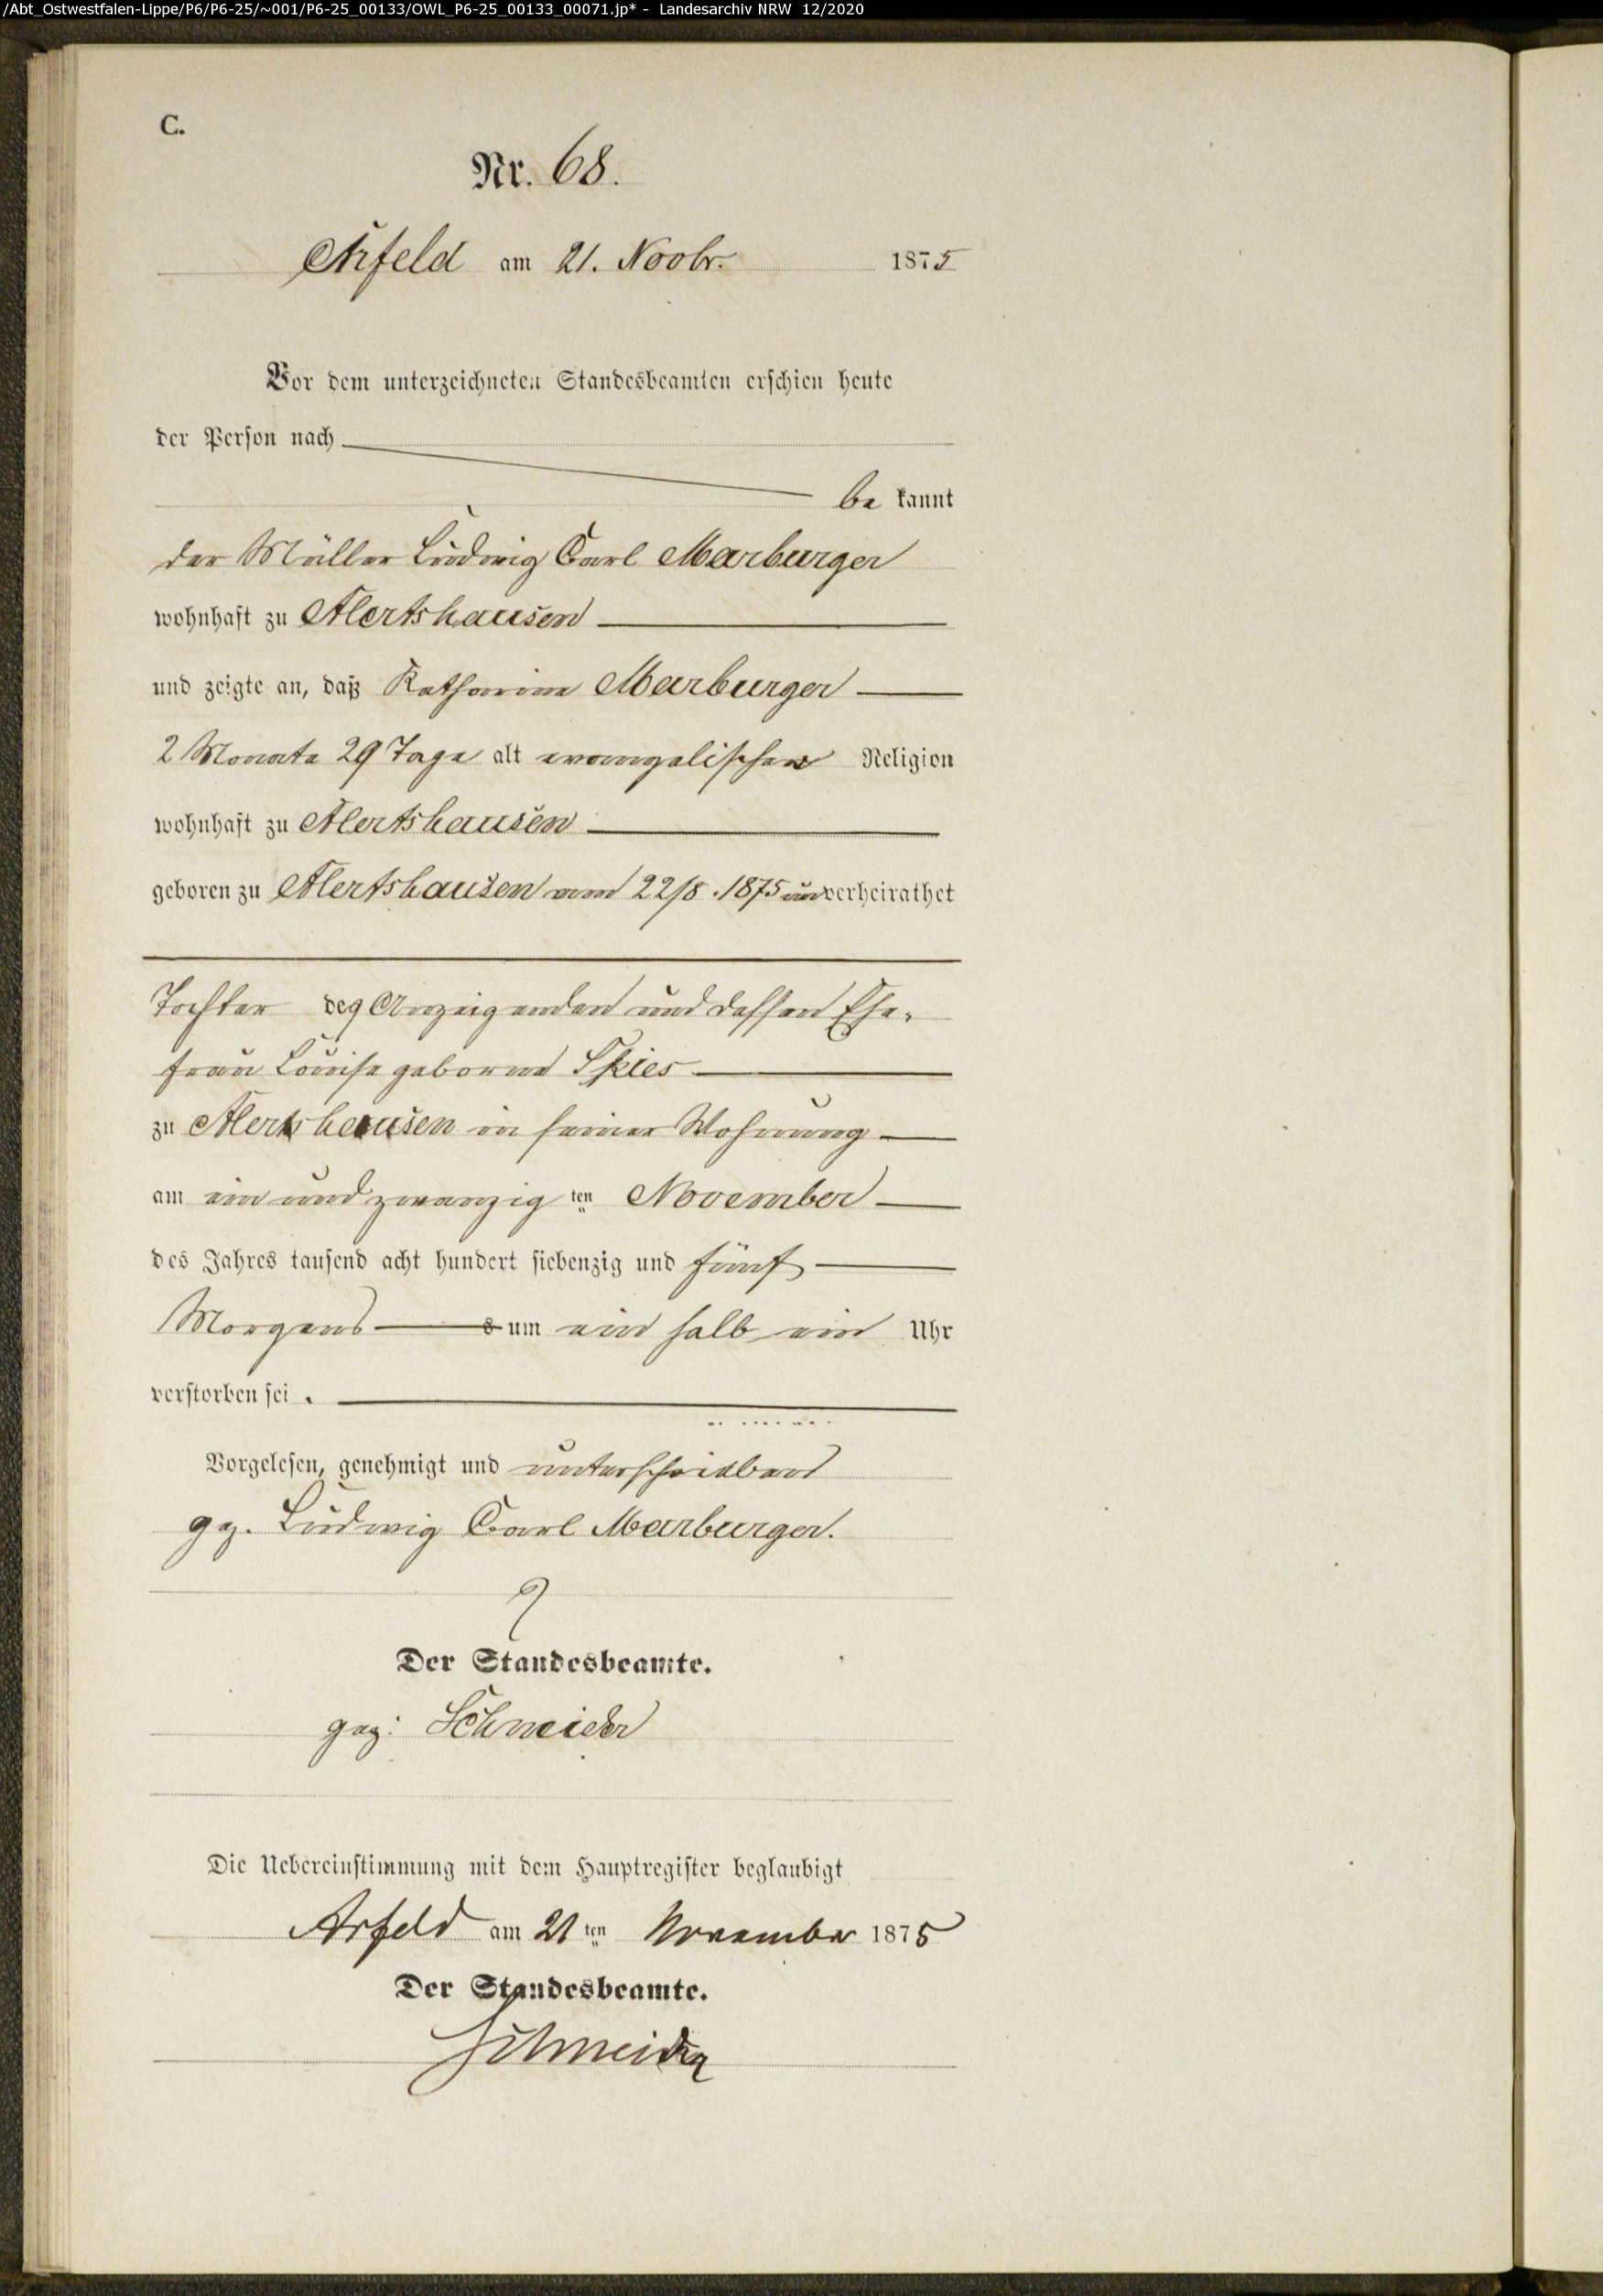 /Abt_Ostwestfalen-Lippe/P6/P6-25/~001/P6-25_00133/OWL_P6-25_00133_00071.jp* - Landesarchiv NRW 12/2020
C.
Nr. 68.
Arfeld am 21. Novbr. 1875
Vor dem unterzeichneten Standesbeamten erschien heute
der Person nach
be kannt
der Müller Ludwig Carl Marburger
wohnhaft zu Alertshausen
und zeigte an, daß Katharine Marburger
2 Monate 29 Tage alt evangelischer Religion
wohnhaft zu Alertshausen
geboren zu Alertshausen am 22/8. 1875 unverheirathet
Tochter des Anzeigenden und dessen Ehe-
frau Louise geborne Spies
zu Alertshausen in seiner Wohnung
am ein und zwanzig ten November
des Jahres tausend acht hundert siebenzig und fünf
Morgens s um ein halb ein Uhr
verstorben sei.
Vorgelesen, genehmigt und unterschrieben
gz. Ludwig Carl Marburger.
Der Standesbeamte.
gez: Schneider
Die Uebereinstimmung mit dem Hauptregister beglaubigt
Arfeld am 21 ten November 1875
Der Standesbeamte.
Schneider